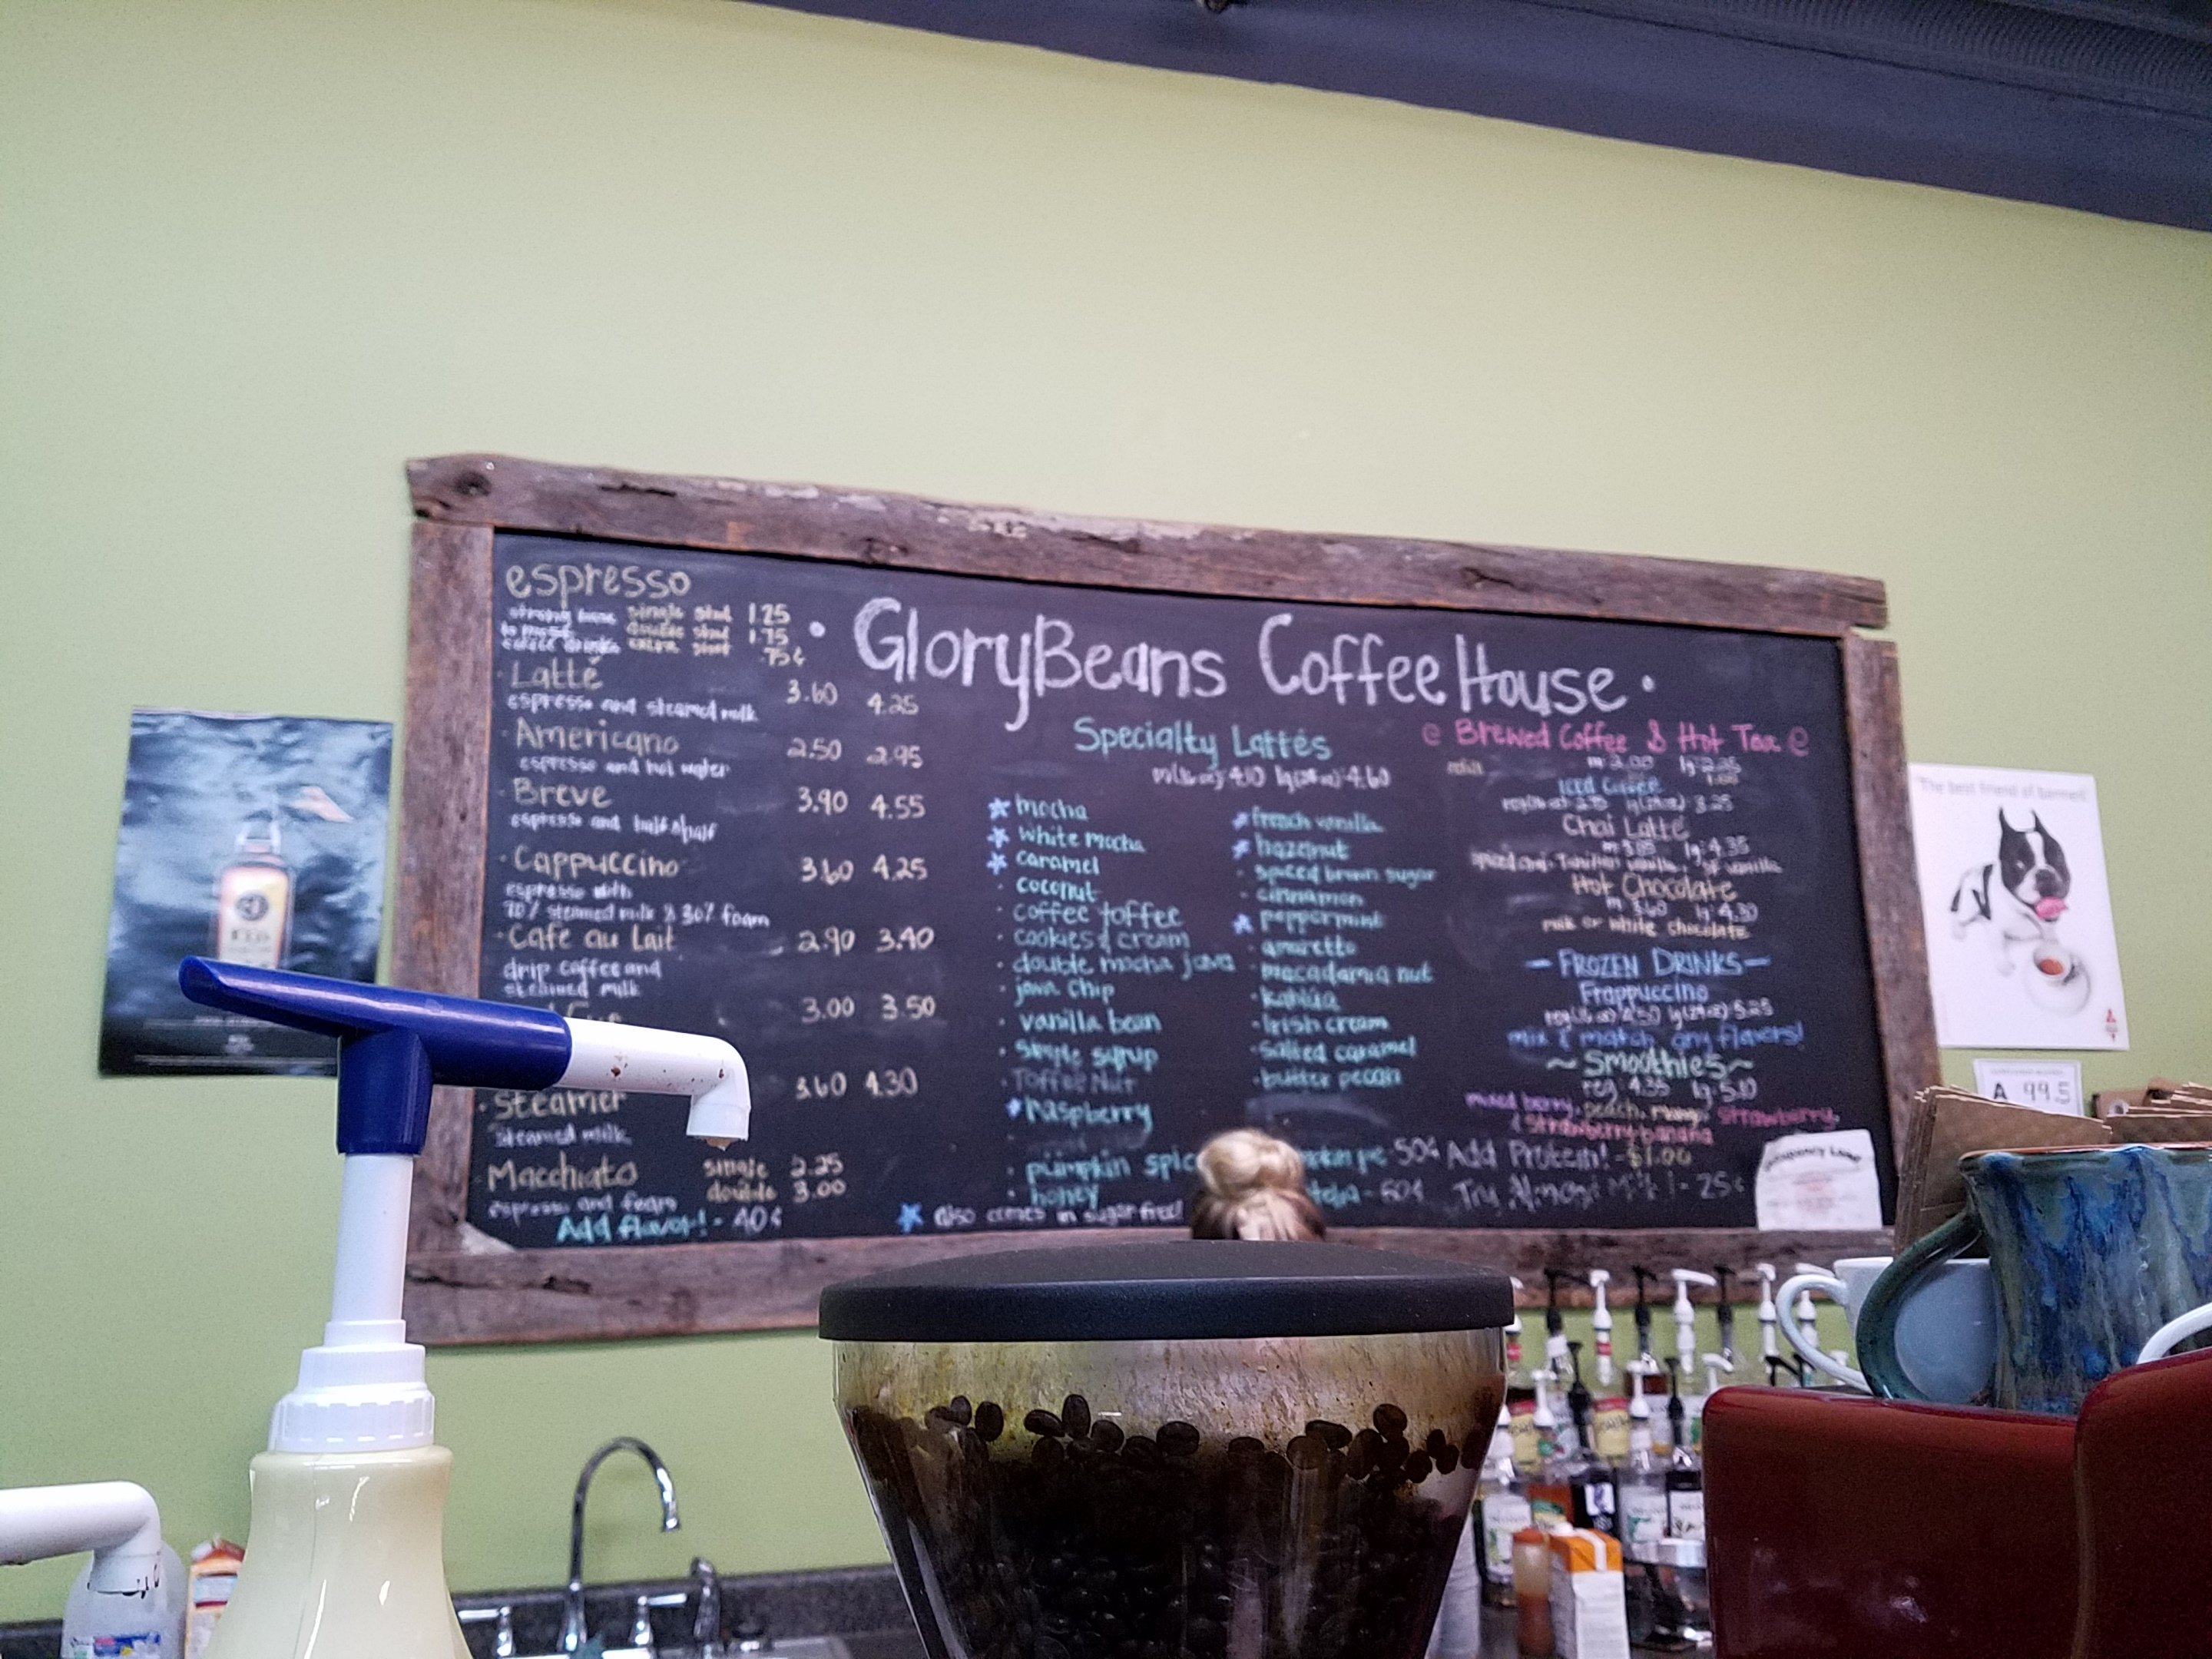 espresso
single shot 1.25
double shot 1.75
extra shot .75¢
· GloryBeans Coffee House ·
· Latté 3.60 4.25
espresso and steamed milk
· Americano 2.50 2.95
espresso and hot water
· Breve 3.90 4.55
espresso and half & half
· Cappuccino 3.60 4.25
espresso with
70% steamed milk & 30% foam
· Cafe au Lait 2.90 3.40
drip coffee and
steamed milk
3.00 3.50
3.60 4.30
· Steamer
steamed milk
· Macchiato single 2.25
double 3.00
espresso and foam
Add flavor! - 40¢
Specialty Lattés
lg 4.60
mocha
white mocha
caramel
· coconut
· coffee toffee
· cookies & cream
· double mocha java
· java chip
· vanilla bean
· simple syrup
· Toffee Nut
raspberry
· pumpkin
· honey
also comes in sugar free!
french vanilla
hazelnut
· spiced brown sugar
· cinnamon
peppermint
· amaretto
· macadamia nut
· kahlúa
· Irish cream
· salted caramel
· butter pecan
Brewed Coffee & Hot Tea
m 2.00 lg 2.25
refill 1.00
Iced Coffee
3.25
Chai Latté
lg 4.35
Hot Chocolate
m 3.60 lg 4.30
milk or white chocolate
— FROZEN DRINKS —
Frappuccino
5.25
mix & match any flavors!
~ Smoothies ~
reg 4.35 lg 5.10
mixed berry, peach, mango, strawberry,
& strawberry banana
50¢ Add Protein! - $1.00
- 60¢ Try Almond Milk! - 25¢
The best friend of barman!
A 99.5
Occupancy Load